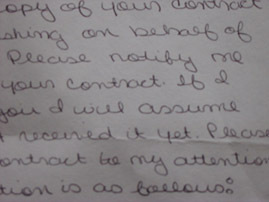 opy of your contract
shing on behalf of
Please notify me
your contract. If I
you I will assume
t received it yet. Please
ontract to my attention
tion is as follows: